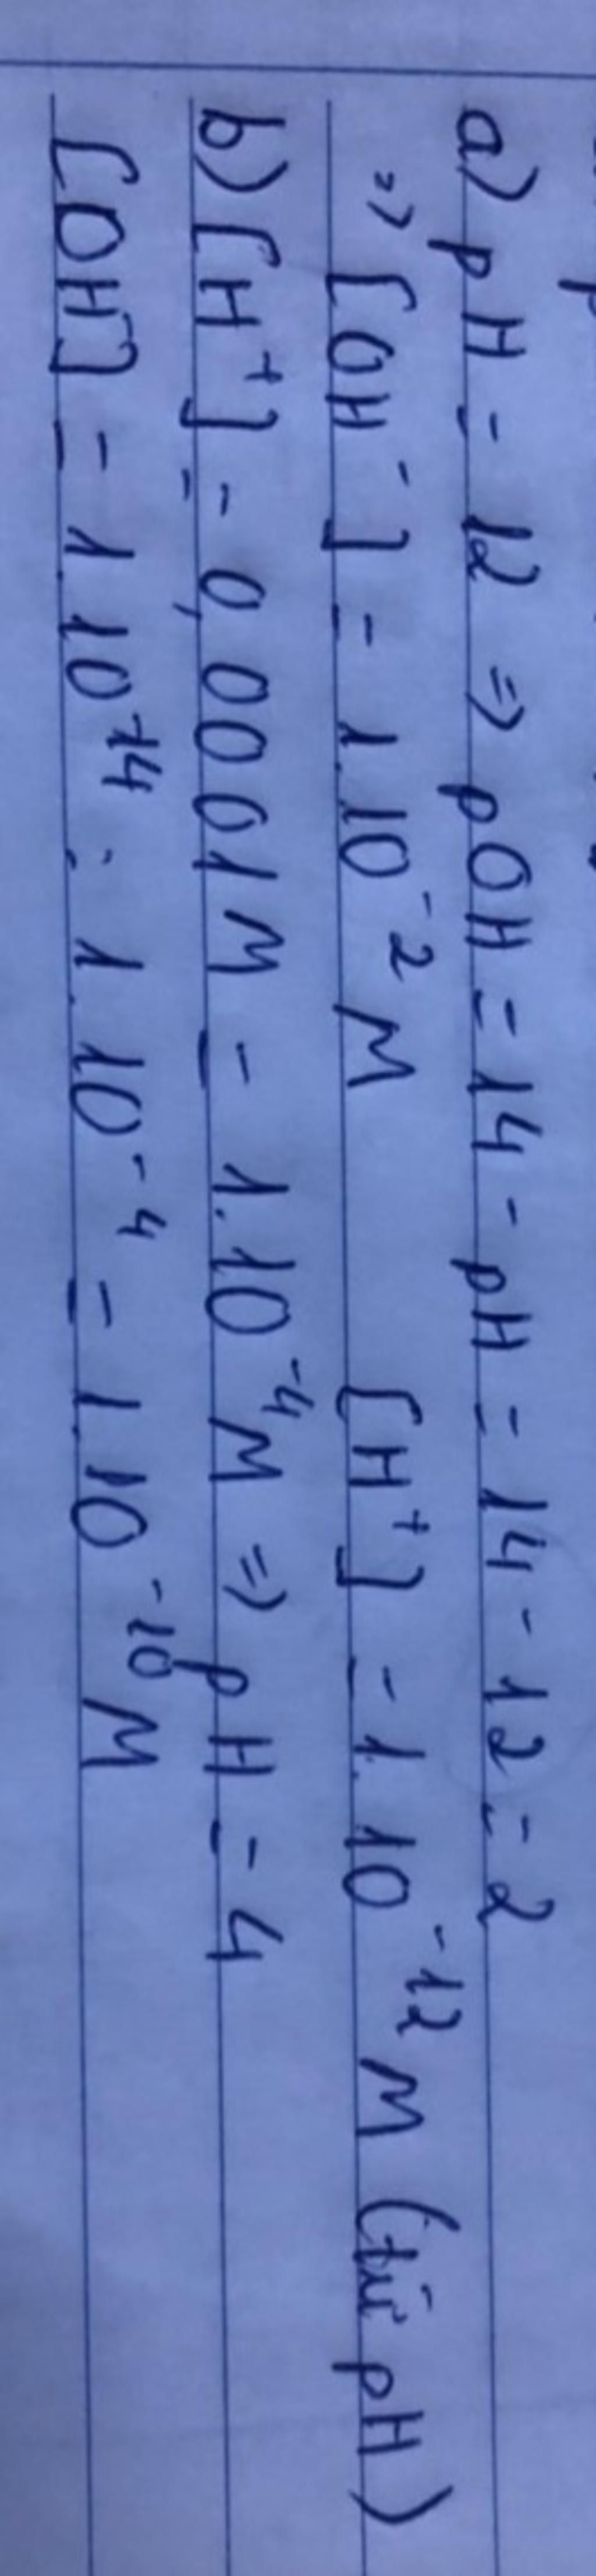 a) pH = 12 => pOH = 14 - pH = 14 - 12 = 2
=> [OH⁻] = 1.10⁻² M [H⁺] = 1.10⁻¹² M (từ pH)
b) [H⁺] = 0,0001M = 1.10⁻⁴ M => pH = 4
[OH⁻] = 1.10⁻¹⁴ : 1.10⁻⁴ = 1.10⁻¹⁰ M